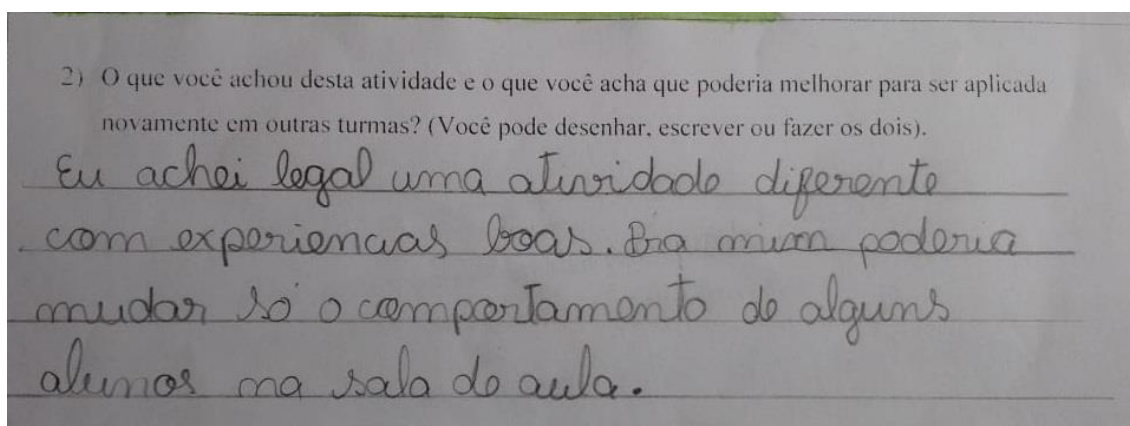 2) O que você achou desta atividade e o que você acha que poderia melhorar para ser aplicada
novamente em outras turmas? (Você pode desenhar, escrever ou fazer os dois).
Eu achei legal uma atividade diferente
com experiencias boas. Pra mim poderia
mudar só o comportamento de alguns
alunos na sala de aula.